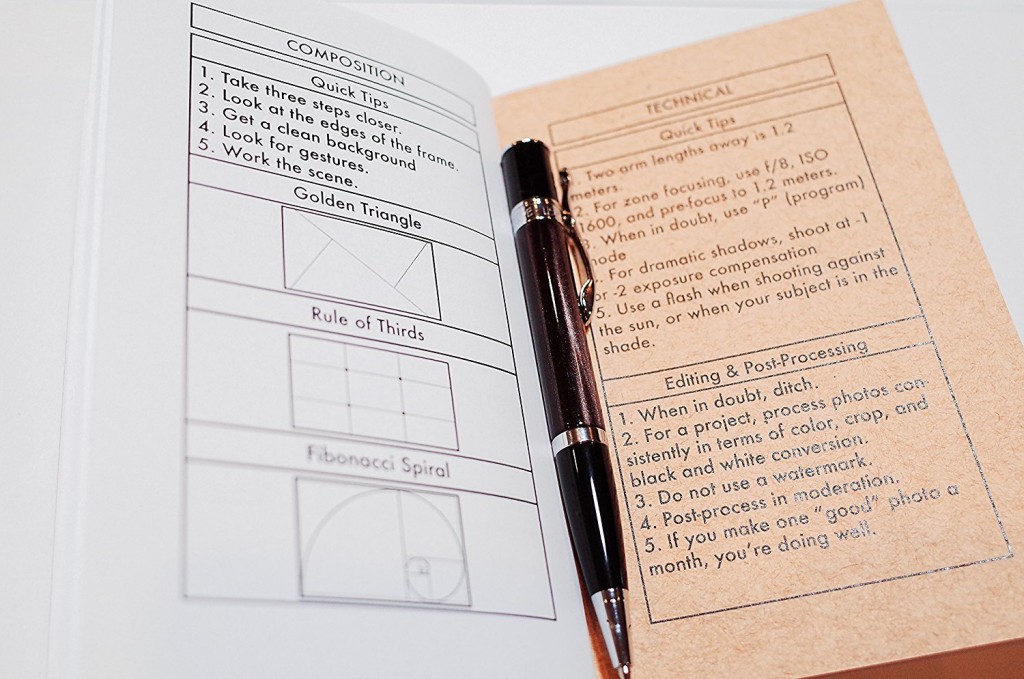 COMPOSITION
Quick Tips
1. Take three steps closer.
2. Look at the edges of the frame.
3. Get a clean background
4. Look for gestures.
5. Work the scene.
Golden Triangle
Rule of Thirds
Fibonacci Spiral
TECHNICAL
Quick Tips
Two arm lengths away is 1.2
meters.
2. For zone focusing, use f/8, ISO
1600, and pre-focus to 1.2 meters.
. When in doubt, use "P" (program)
. For dramatic shadows, shoot at -1
or -2 exposure compensation
5. Use a flash when shooting against
the sun, or when your subject is in the
shade.
Editing & Post-Processing
1. When in doubt, ditch.
2. For a project, process photos con-
sistently in terms of color, crop, and
black and white conversion.
3. Do not use a watermark.
4. Post-process in moderation.
5. If you make one "good" photo a
month, you're doing well.